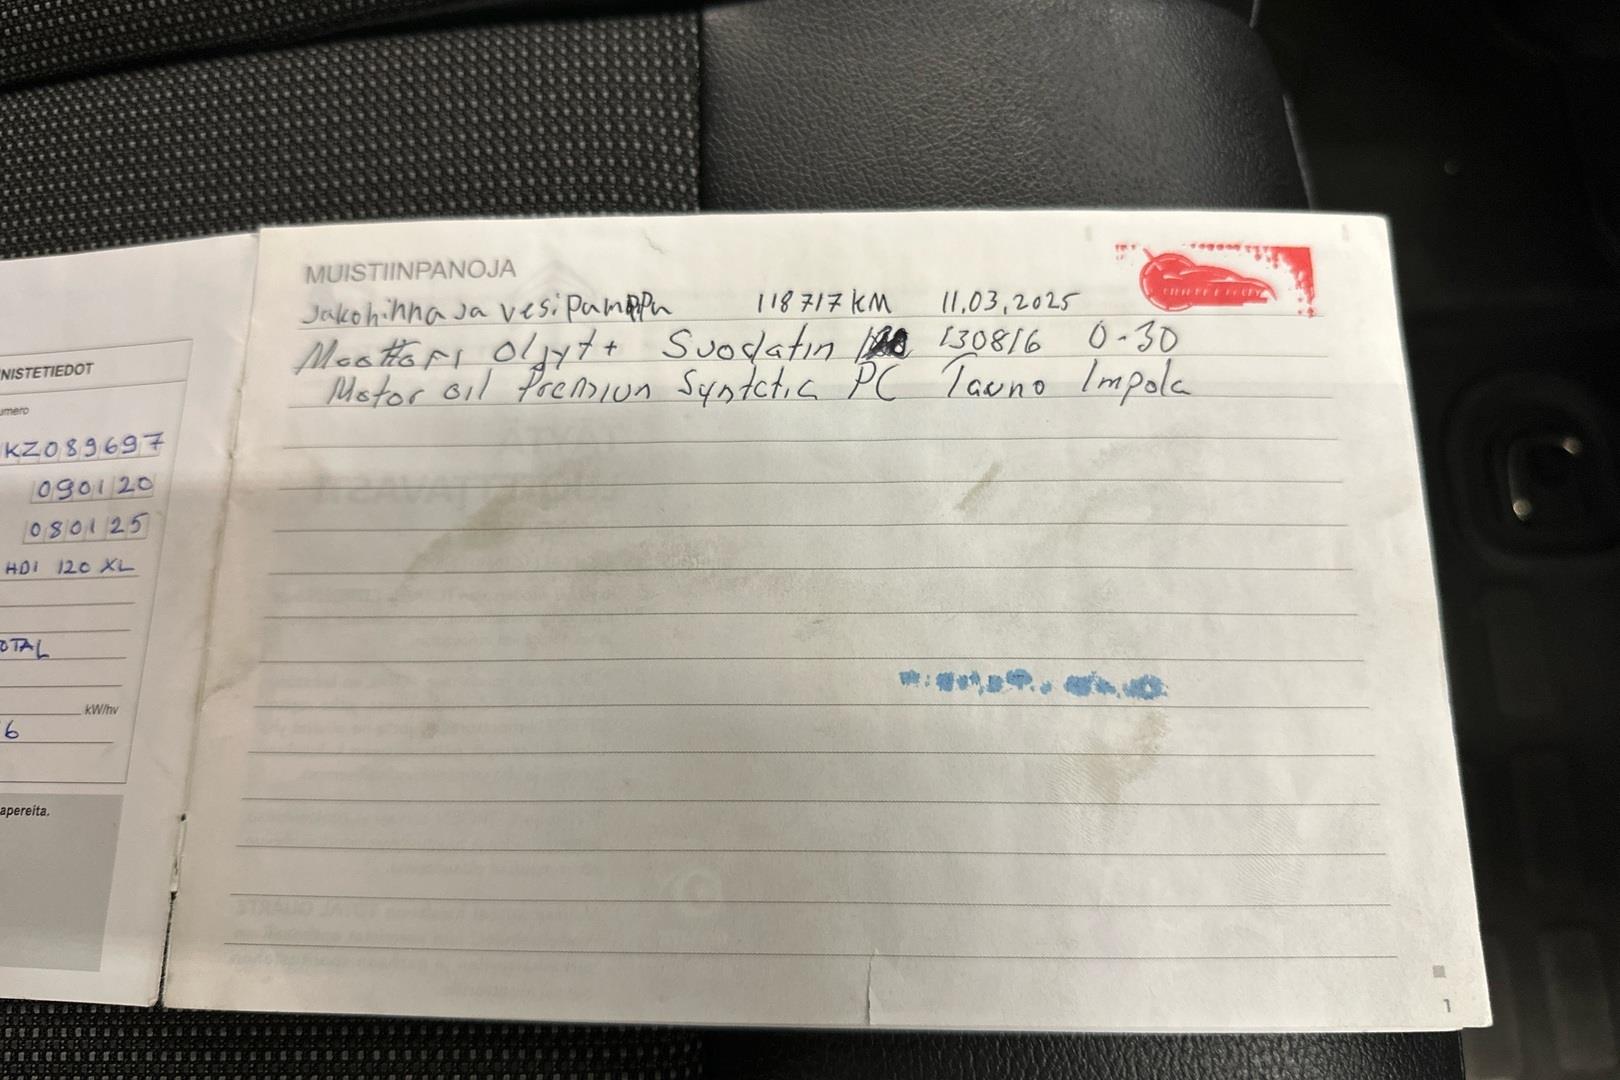 NISTETIEDOT
umero
KZ089697
090120
080125
HDI 120 XL
OTAL
kW/hv
6
apereita.
MUISTIINPANOJA
Jakohihna ja vesipumppu 118717 KM 11.03.2025
Moottori Öljyt + Suodatin 130816 0-30
Motor oil Premium Syntetic PC Tauno Impola
1